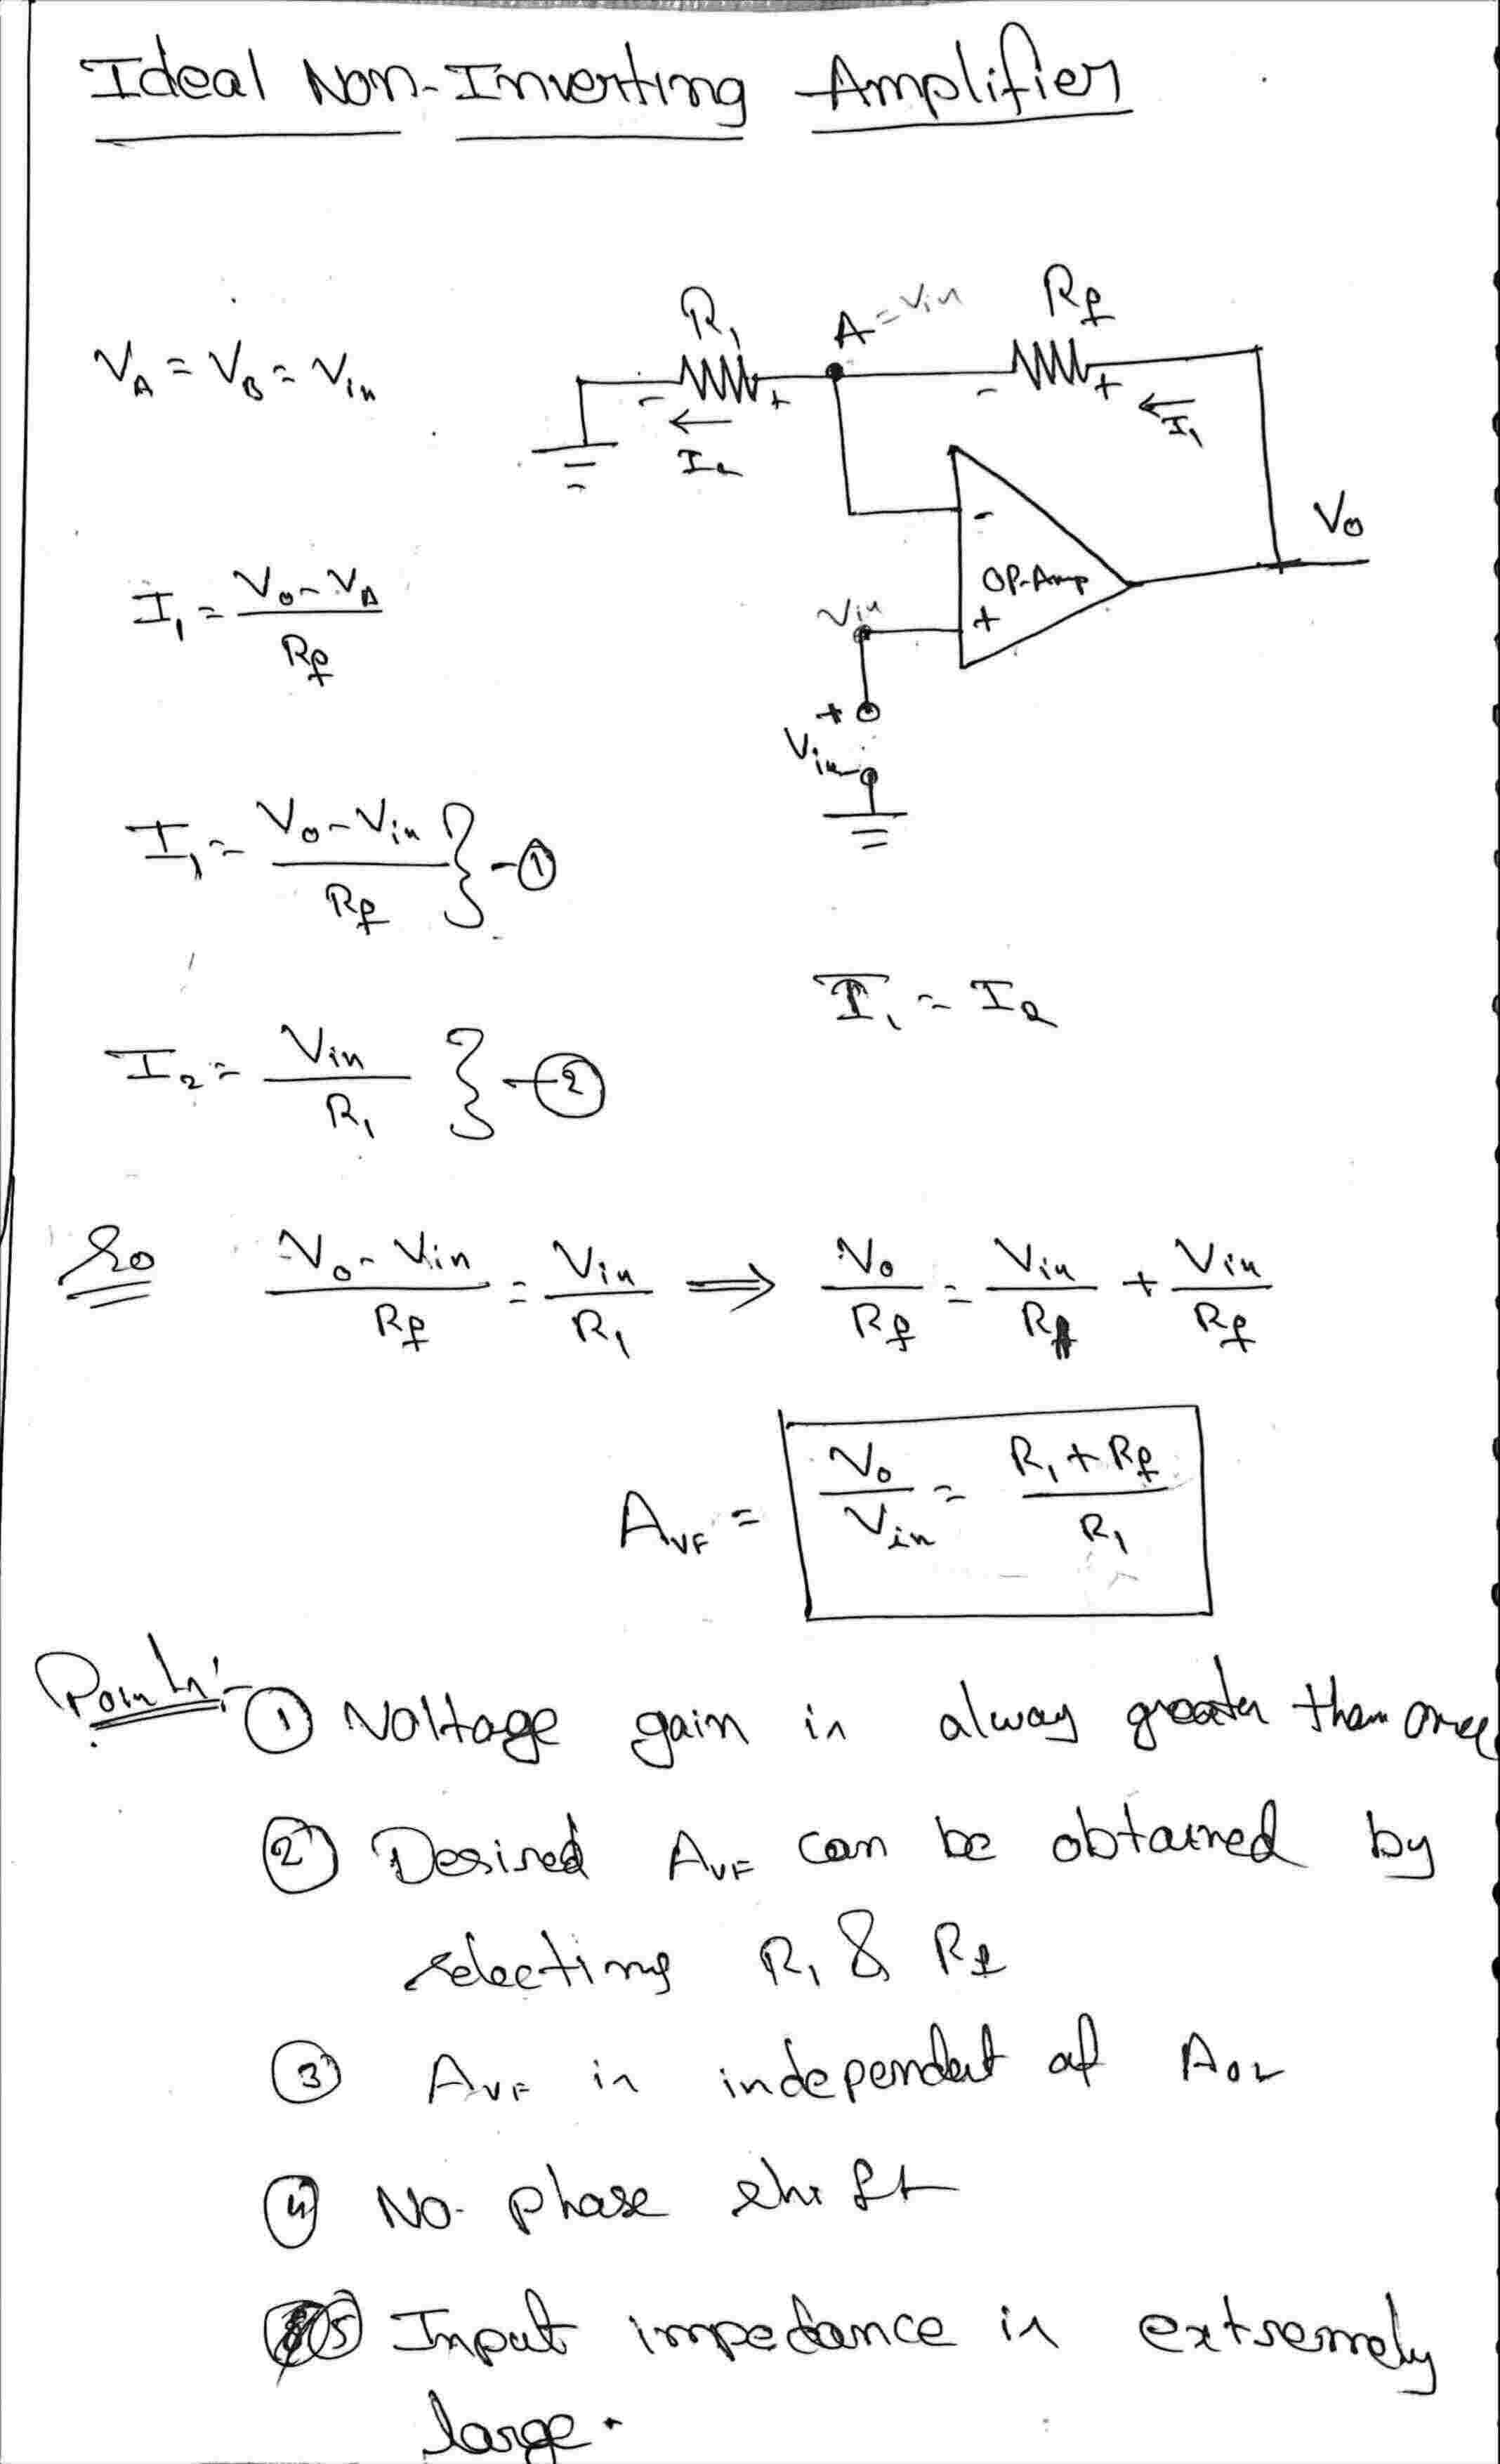 Ideal Non-Inverting Amplifier
R₁ A = Vin Rf
V_A = V_B = Vin
- + - +
I₂ I₁
- Vo
OP-Amp
Vin +
I₁ = (Vo - V_A) / Rf
+
Vin
I₁ = (Vo - Vin) / Rf } - ①
I₁ = I₂
I₂ = Vin / R₁ } - ②
So (Vo - Vin) / Rf = Vin / R₁ ⇒ Vo / Rf = Vin / R₁ + Vin / Rf
A_VF = Vo / Vin = (R₁ + Rf) / R₁
Points:- ① Voltage gain is alway greater than one
② Desired A_VF can be obtained by
selecting R₁ & Rf
③ A_VF is independent of A_OL
④ No phase shift
⑤ Input impedance is extremely
large.